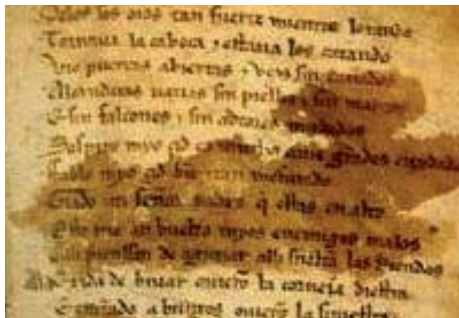 Delos sos oios tan fuerte mientre lorando
Tornaua la cabeça y estaua los catando
Vio puertas abiertas e vços sin cañados
Alcandaras uazias sin pielles e sin mantos
E sin falcones e sin adtores mudados
Sospiro myo çid ca mucho auie grãdes cuydados
Fablo myo çid biẽ tan mesurado
Grado señor padre q̃ estas en alto
Esto me an buelto myos enemigos malos
Alli pienssan de aguijar alli sueltã las Riendas
exida de biuar ouierõ la corneja diestra
E entrãdo a burgos ouierõ la siniestra